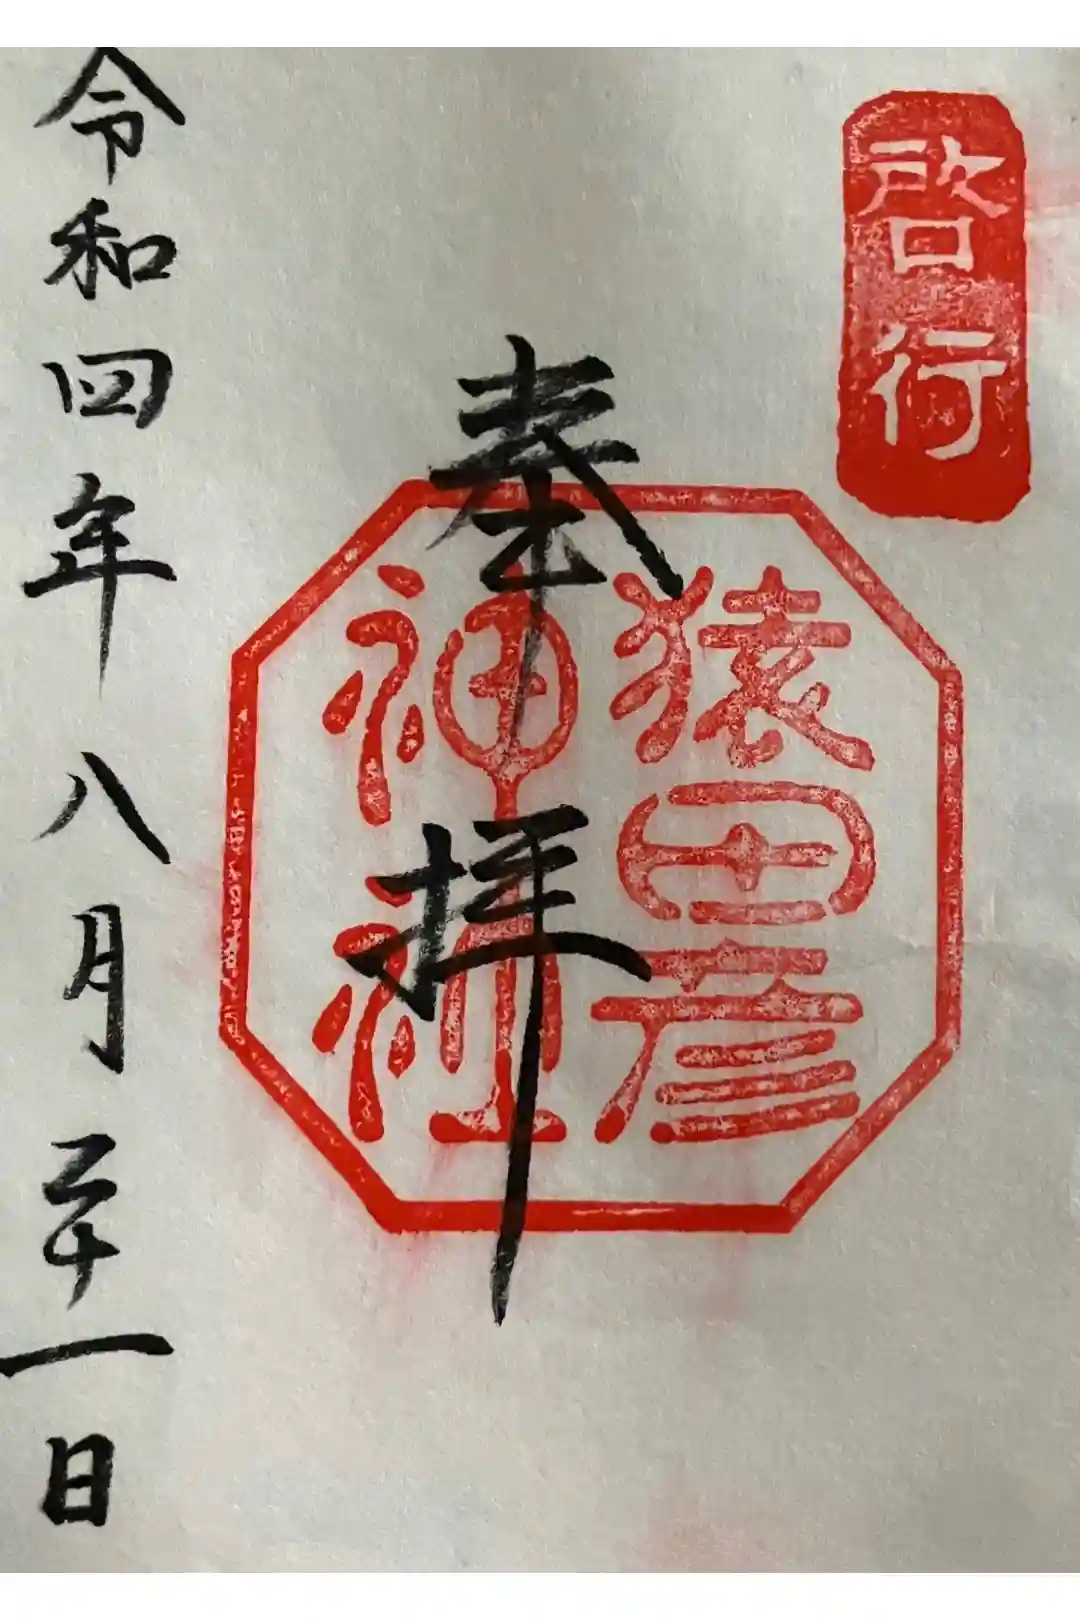 啓行
奉拝
猿田彦
神社
令和四年八月二十一日